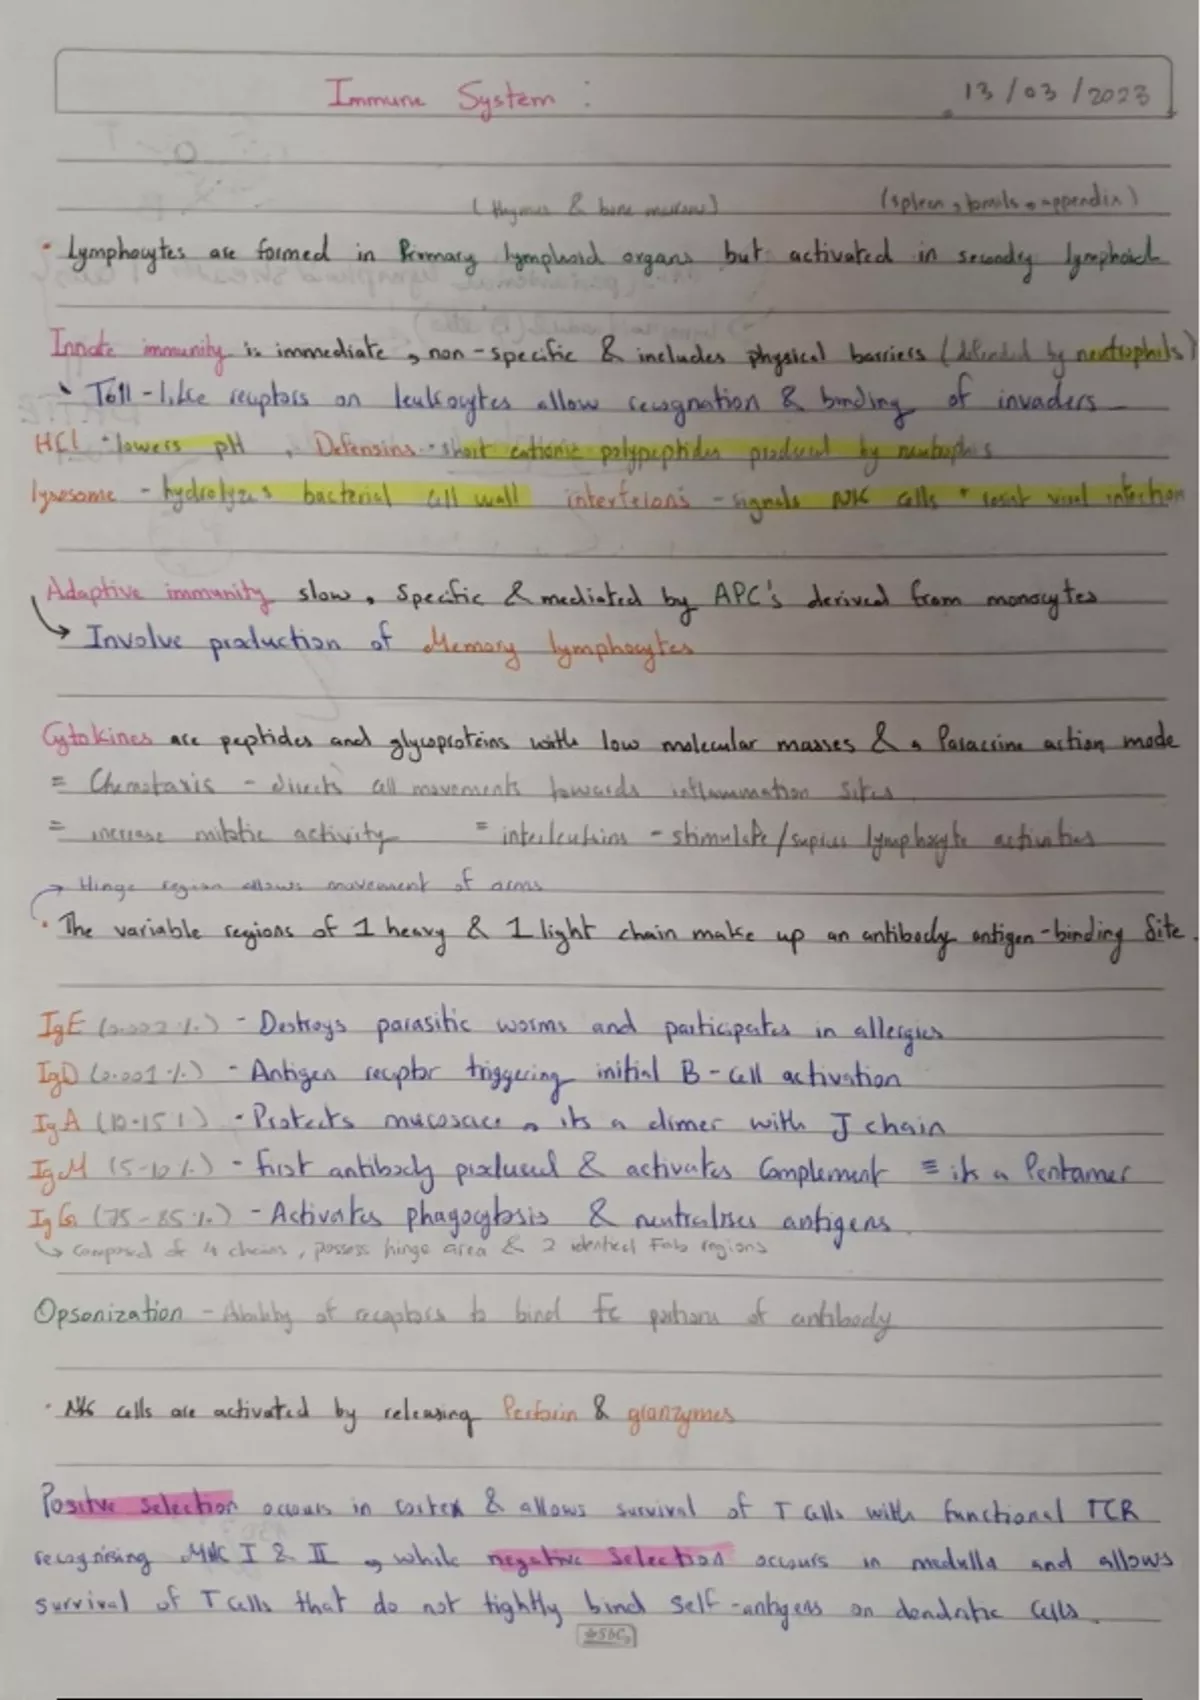 Immune System :
13/03/2023
(thymus & bone marrow)
(spleen, tonsils, appendix)
· Lymphocytes are formed in Primary lymphoid organs but activated in secondry lymphoid
Innate immunity is immediate, non-specific & includes physical barriers (defended by neutrophils)
Toll-like receptors on leukocytes allow recognation & binding of invaders
HCl - lowers pH, Defensins - short cationic polypeptides produced by neutrophils
lysosome - hydrolyzes bacterial cell wall interferons - signals NK cells + resist viral infection
Adaptive immunity slow, Specific & mediated by APC's derived from monocytes
→ Involve production of Memory lymphocytes
Cytokines are peptides and glycoproteins with low molecular masses & a Paracrine action mode
= Chemotaxis - directs cell movements towards inflammation sites.
= increase mitotic activity = interleukins - stimulate/supress lymphocyte activities
→ Hinge region allows movement of arms
· The variable regions of 1 heavy & 1 light chain make up an antibody antigen-binding site.
IgE (0.002%) - Destroys parasitic worms and participates in allergies
IgD (0.001%) - Antigen receptor triggering initial B-cell activation
IgA (10-15%) - Protects mucosace, its a dimer with J chain
IgM (5-10%) - first antibody produced & activates Complement = its a Pentamer
IgG (75-85%) - Activates phagocytosis & neutralises antigens.
↳ composed of 4 chains, possess hinge area & 2 identical Fab regions
Opsonization - Ability of receptors to bind Fc portions of antibody
· NK cells are activated by releasing Perforin & granzymes
Positve selection occurs in cortex & allows survival of T cells with functional TCR
recognising MHC I & II, while negative Selection occurs in medulla and allows
survival of T cells that do not tightly bind self-antigens on dendritic cells.